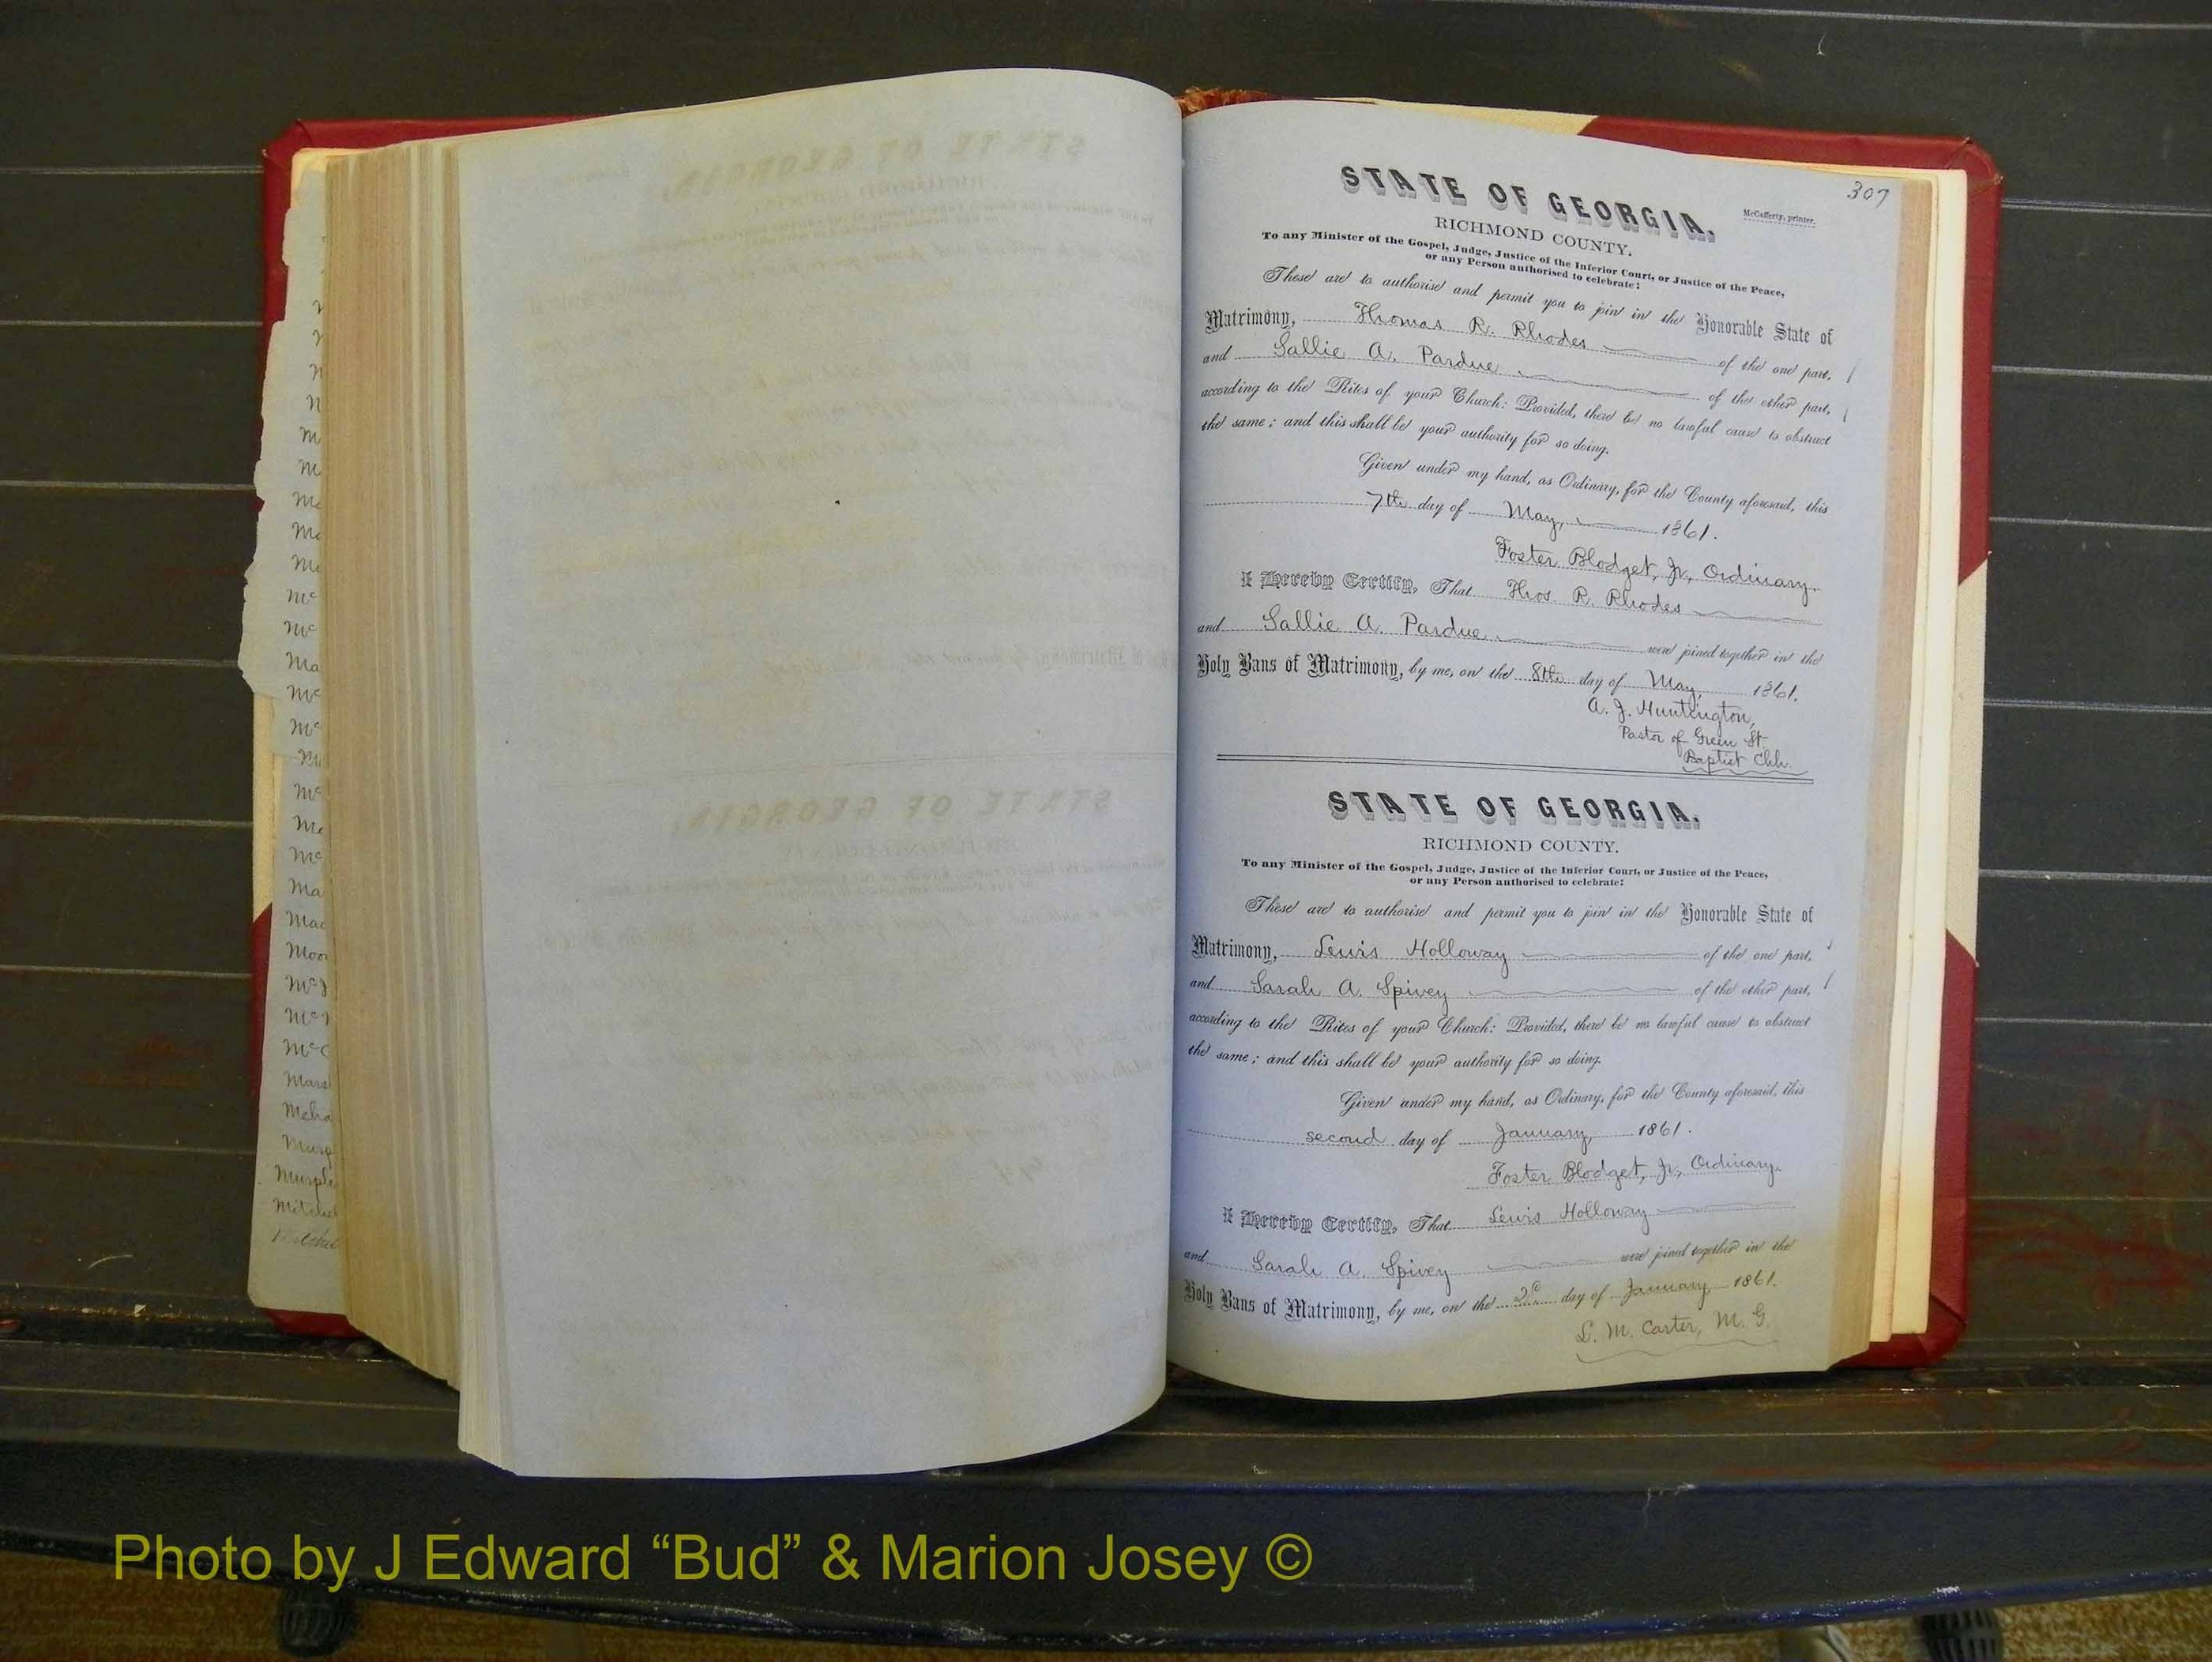 307
STATE OF GEORGIA.
McCafferty, printer.
RICHMOND COUNTY.
To any Minister of the Gospel, Judge, Justice of the Inferior Court, or Justice of the Peace,
or any Person authorised to celebrate:
These are to authorise and permit you to join in the Honorable State of
Matrimony, Thomas R. Rhodes of the one part,
and Sallie A. Pardue of the other part,
according to the Rites of your Church: Provided, there be no lawful cause to obstruct
the same; and this shall be your authority for so doing.
Given under my hand, as Ordinary, for the County aforesaid, this
7th day of May, 1861.
Foster Blodget, Jr., Ordinary.
I Hereby Certify, That Thos. R. Rhodes
and Sallie A. Pardue were joined together in the
Holy Bans of Matrimony, by me, on the 8th day of May, 1861.
A. J. Huntington,
Pastor of Green St.
Baptist Chh.
STATE OF GEORGIA.
RICHMOND COUNTY.
To any Minister of the Gospel, Judge, Justice of the Inferior Court, or Justice of the Peace,
or any Person authorised to celebrate:
These are to authorise and permit you to join in the Honorable State of
Matrimony, Lewis Holloway of the one part,
and Sarah A. Spivey of the other part,
according to the Rites of your Church: Provided, there be no lawful cause to obstruct
the same; and this shall be your authority for so doing.
Given under my hand, as Ordinary, for the County aforesaid, this
second day of January, 1861.
Foster Blodget, Jr., Ordinary.
I Hereby Certify, That Lewis Holloway
and Sarah A. Spivey were joined together in the
Holy Bans of Matrimony, by me, on the 2d day of January 1861.
L. M. Carter, M. G.
Photo by J Edward “Bud” & Marion Josey ©